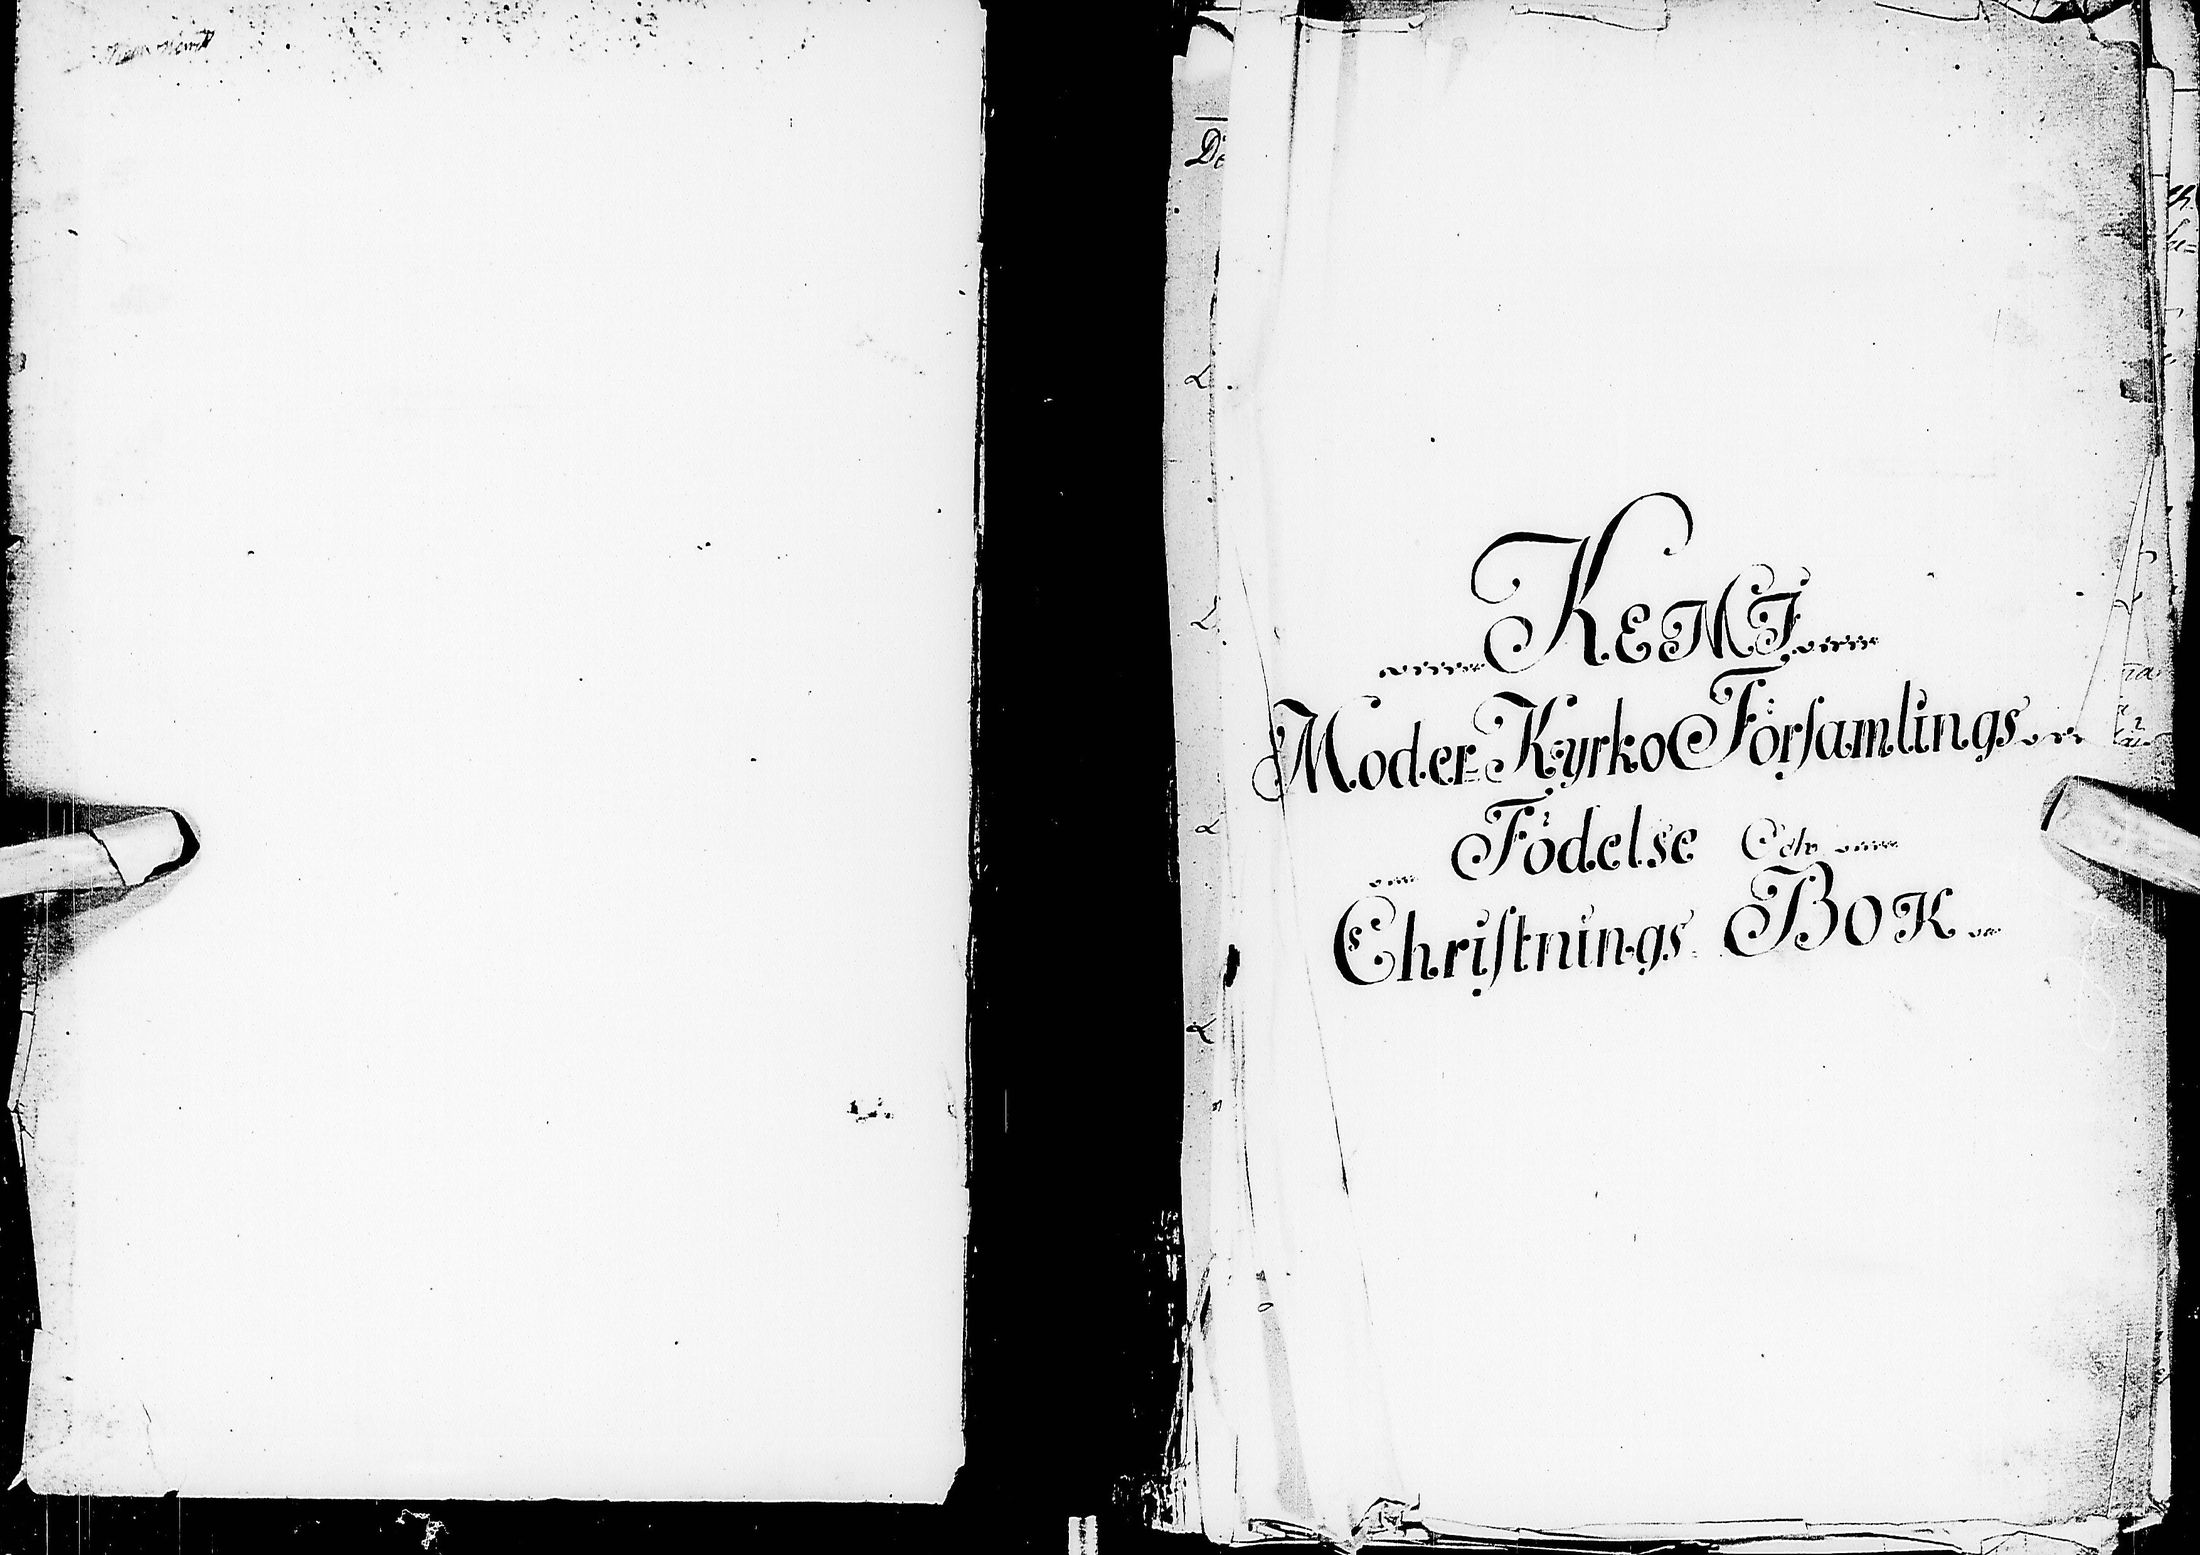 KEMI
Moder=Kyrko Församlings
Födelse Och
Christnings BOK